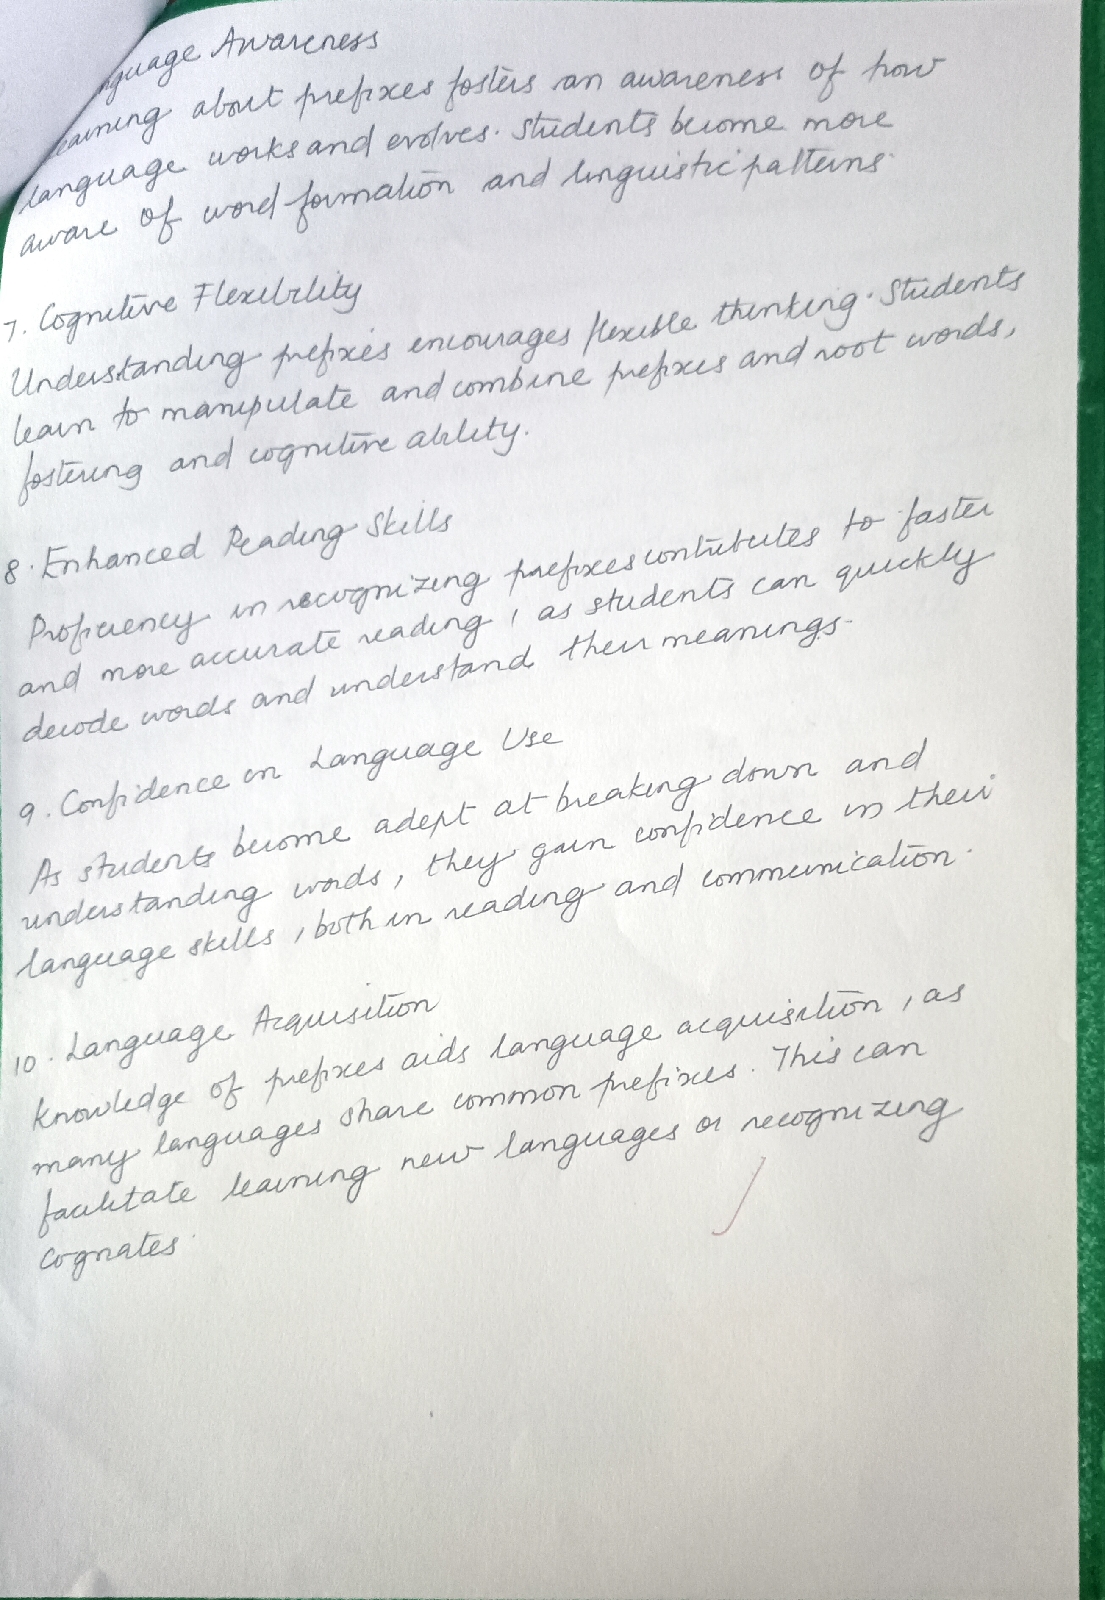 nguage Awareness
earning about prefixes fosters an awareness of how
language works and evolves. Students become more
aware of word formation and linguistic patterns.
7. Cognitive Flexibility
Understanding prefixes encourages flexible thinking. Students
learn to manipulate and combine prefixes and root words,
fostering and cognitive ability.
8. Enhanced Reading Skills
Proficiency in recognizing prefixes contributes to faster
and more accurate reading, as students can quickly
decode words and understand their meanings.
9. Confidence in Language Use
As students become adept at breaking down and
understanding words, they gain confidence in their
language skills, both in reading and communication.
10. Language Acquisition
Knowledge of prefixes aids language acquisition, as
many languages share common prefixes. This can
facilitate learning new languages or recognizing
cognates.